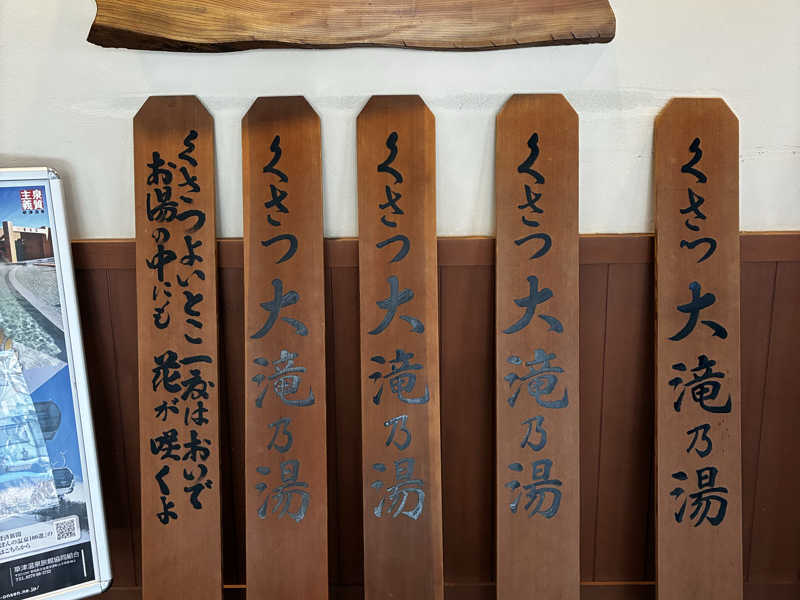 くさつよいとこ一度はおいで
お湯の中にも花が咲くよ
くさつ大滝乃湯
くさつ大滝乃湯
くさつ大滝乃湯
くさつ大滝乃湯
泉質
主義
こちらから
草津温泉旅館協同組合